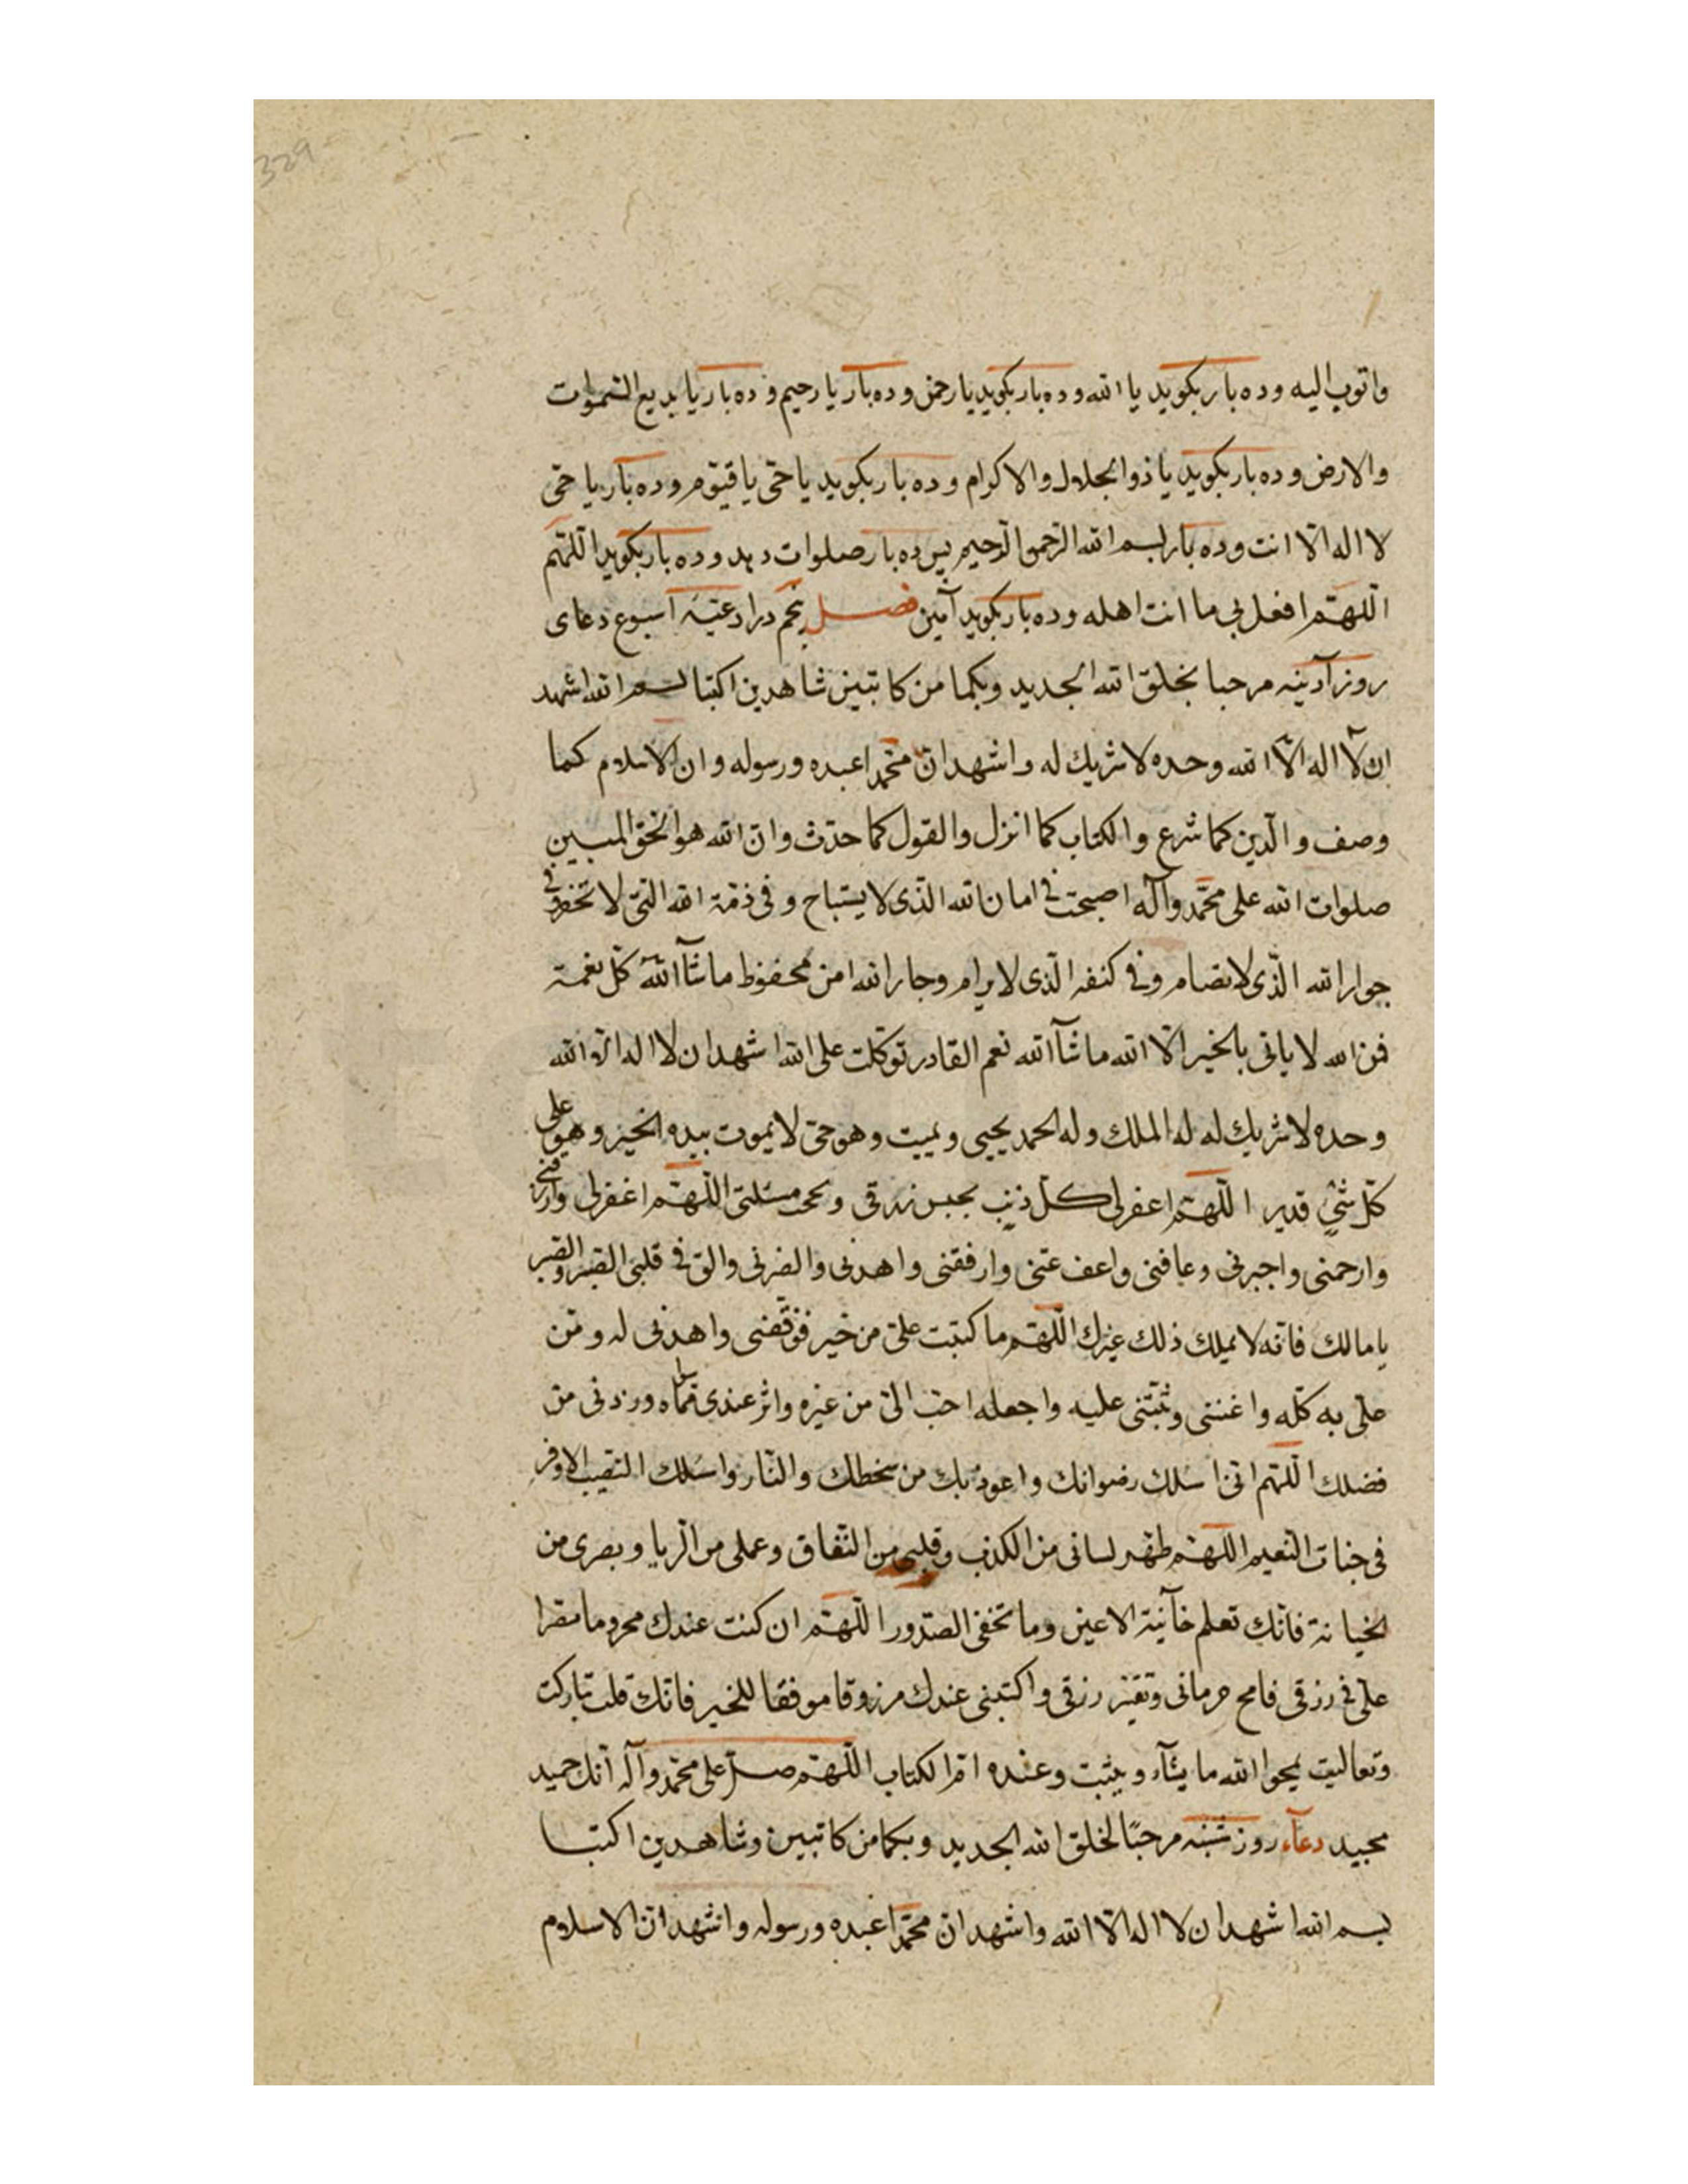 329
واتوب اليه وده بار بكويد يا الله وده بار بكويد يا رحمن وده بار يا رحيم وده بار يا بديع السموات
والارض وده بار بكويد يا ذو الجلال والاكرام وده بار بكويد يا حى يا قيوم وده بار يا حى
لا اله الا انت وده بار بسم الله الرحمن الرحيم پس ده بار صلوات دهد وده بار بكويد اللهم
اللهم افعل بى ما انت اهله وده بار بكويد آمين فصل پنجم در ادعيۀ اسبوع دعاى
روز آدينه مرحبا بخلق الله الجديد وبكما من كاتبين شاهدين اكتبا بسم الله اشهد
ان لا اله الا الله وحده لا شريك له واشهد ان محمدا عبده ورسوله وان الاسلام كما
وصف والدين كما شرع والكتاب كما انزل والقول كما حدث وان الله هو الحق المبين
صلوات الله على محمد وآله اصبحت فى امان الله الذى لا يستباح وفى ذمة الله التى لا تخفر وفى
جوار الله الذى لا يضام وفى كنفه الذى لا يرام وجار الله امن محفوظ ما شآء الله كل نعمة
فمن الله لا ياتى بالخير الا الله ما شآء الله نعم القادر توكلت على الله اشهد ان لا اله الا الله
وحده لا شريك له له الملك وله الحمد يحيى ويميت وهو حى لا يموت بيده الخير وهو على
كل شئ قدير اللهم اغفر لى كل ذنب يحبس رزقى ويحجب مسئلتى اللهم اغفر لى وارزقنى
وارحمنى واجبرنى وعافنى واعف عنى وارفقنى واهدنى وانصرنى والق فى قلبى الصبر والنصر
يا مالك فانه لا يملك ذلك غيرك اللهم ما كتبت على من خير فوفقنى واهدنى له ومن
على به كله واعننى وثبتنى عليه واجعله احب الى من غيره واثر عندى مما سواه وزدنى من
فضلك اللهم انى اسئلك رضوانك واعوذ بك من سخطك والنار واسئلك النصيب الاوفر
فى جنات النعيم اللهم طهر لسانى من الكذب وقلبى من النفاق وعملى من الريا وبصرى من
الخيانة فانك تعلم خآئنة الاعين وما تخفى الصدور اللهم ان كنت عندك محروما مقترا
على فى رزقى فامح حرمانى وتقتير رزقى واكتبنى عندك مرزوقا موفقا للخير فانك قلت تباركت
وتعاليت يمحوا الله ما يشآء ويثبت وعنده ام الكتاب اللهم صل على محمد وآله انك حميد
مجيد دعآء روز شنبه مرحبًا لخلق الله الجديد وبكما من كاتبين وشاهدين اكتبا
بسم الله اشهد ان لا اله الا الله واشهد ان محمدا عبده ورسوله واشهد ان الاسلام